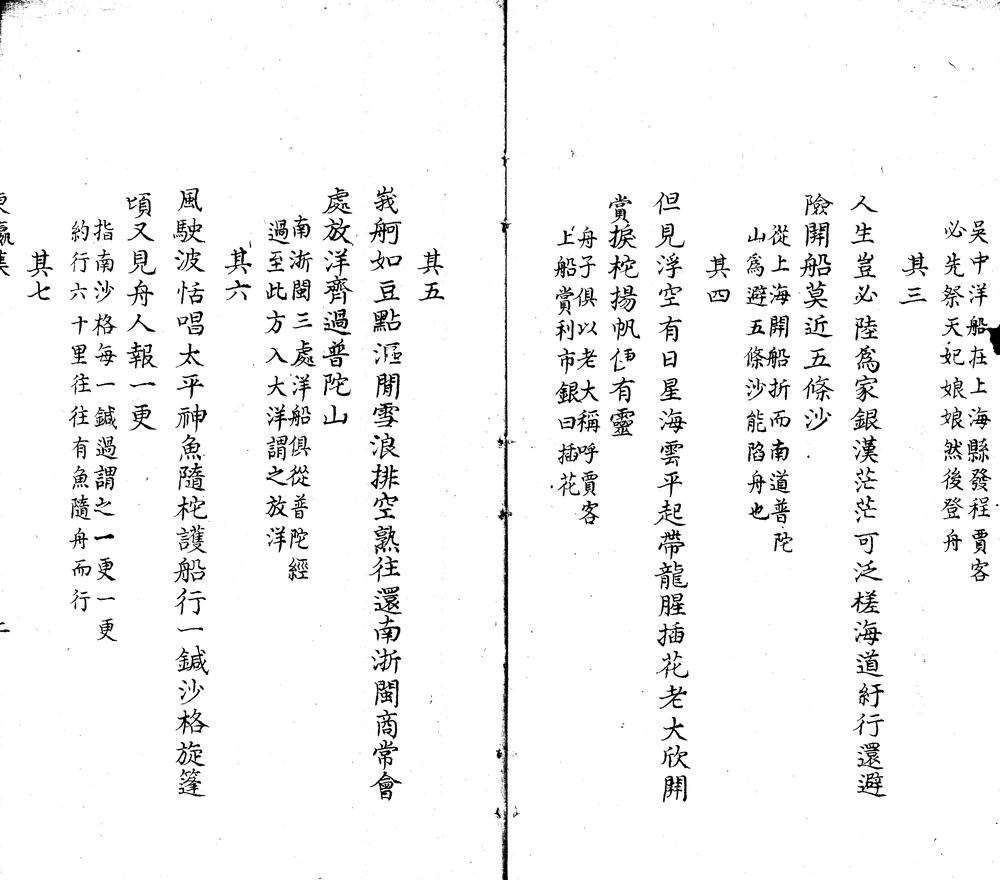 吴中洋船在上海縣發程賈客
必先祭天妃娘娘然後登舟
其三
人生豈必陸爲家銀漢茫茫可泛槎海道紆行還避
險開船莫近五條沙
從上海開船折而南道普陀
山爲避五條沙能陷舟也
其四
但見浮空有日星海雲平起帶龍腥插花老大欣開
賞捩柁揚帆有靈
舟子俱以老大稱呼賈客
上船賞利市銀曰插花
其五
峩舸如豆點漚間雪浪排空熟往還南浙閩商常會
處放洋齊過普陀山
南浙閩三處洋船俱從普陀經
過至此方入大洋謂之放洋
其六
風駛波恬唱太平神魚隨柁護船行一鍼沙格旋篷
頃又見舟人報一更
指南沙格每一鍼過謂之一更一更
約行六十里往往有魚隨舟而行
其七